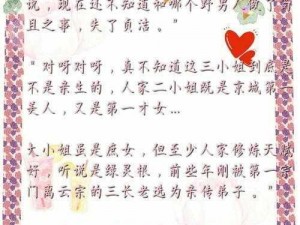 说，现在还不知道和哪个野男人做了苟
且之事，失了贞洁。"
"对呀对呀，真不知道这三小姐到底是
不是亲生的，人家二小姐既是京城第一
美人，又是第一才女…
大小姐虽是庶女，但至少人家修炼天赋
好，听说是绿灵根，前些年刚被第一宗
门离云宗的三长老选为亲传弟子。"